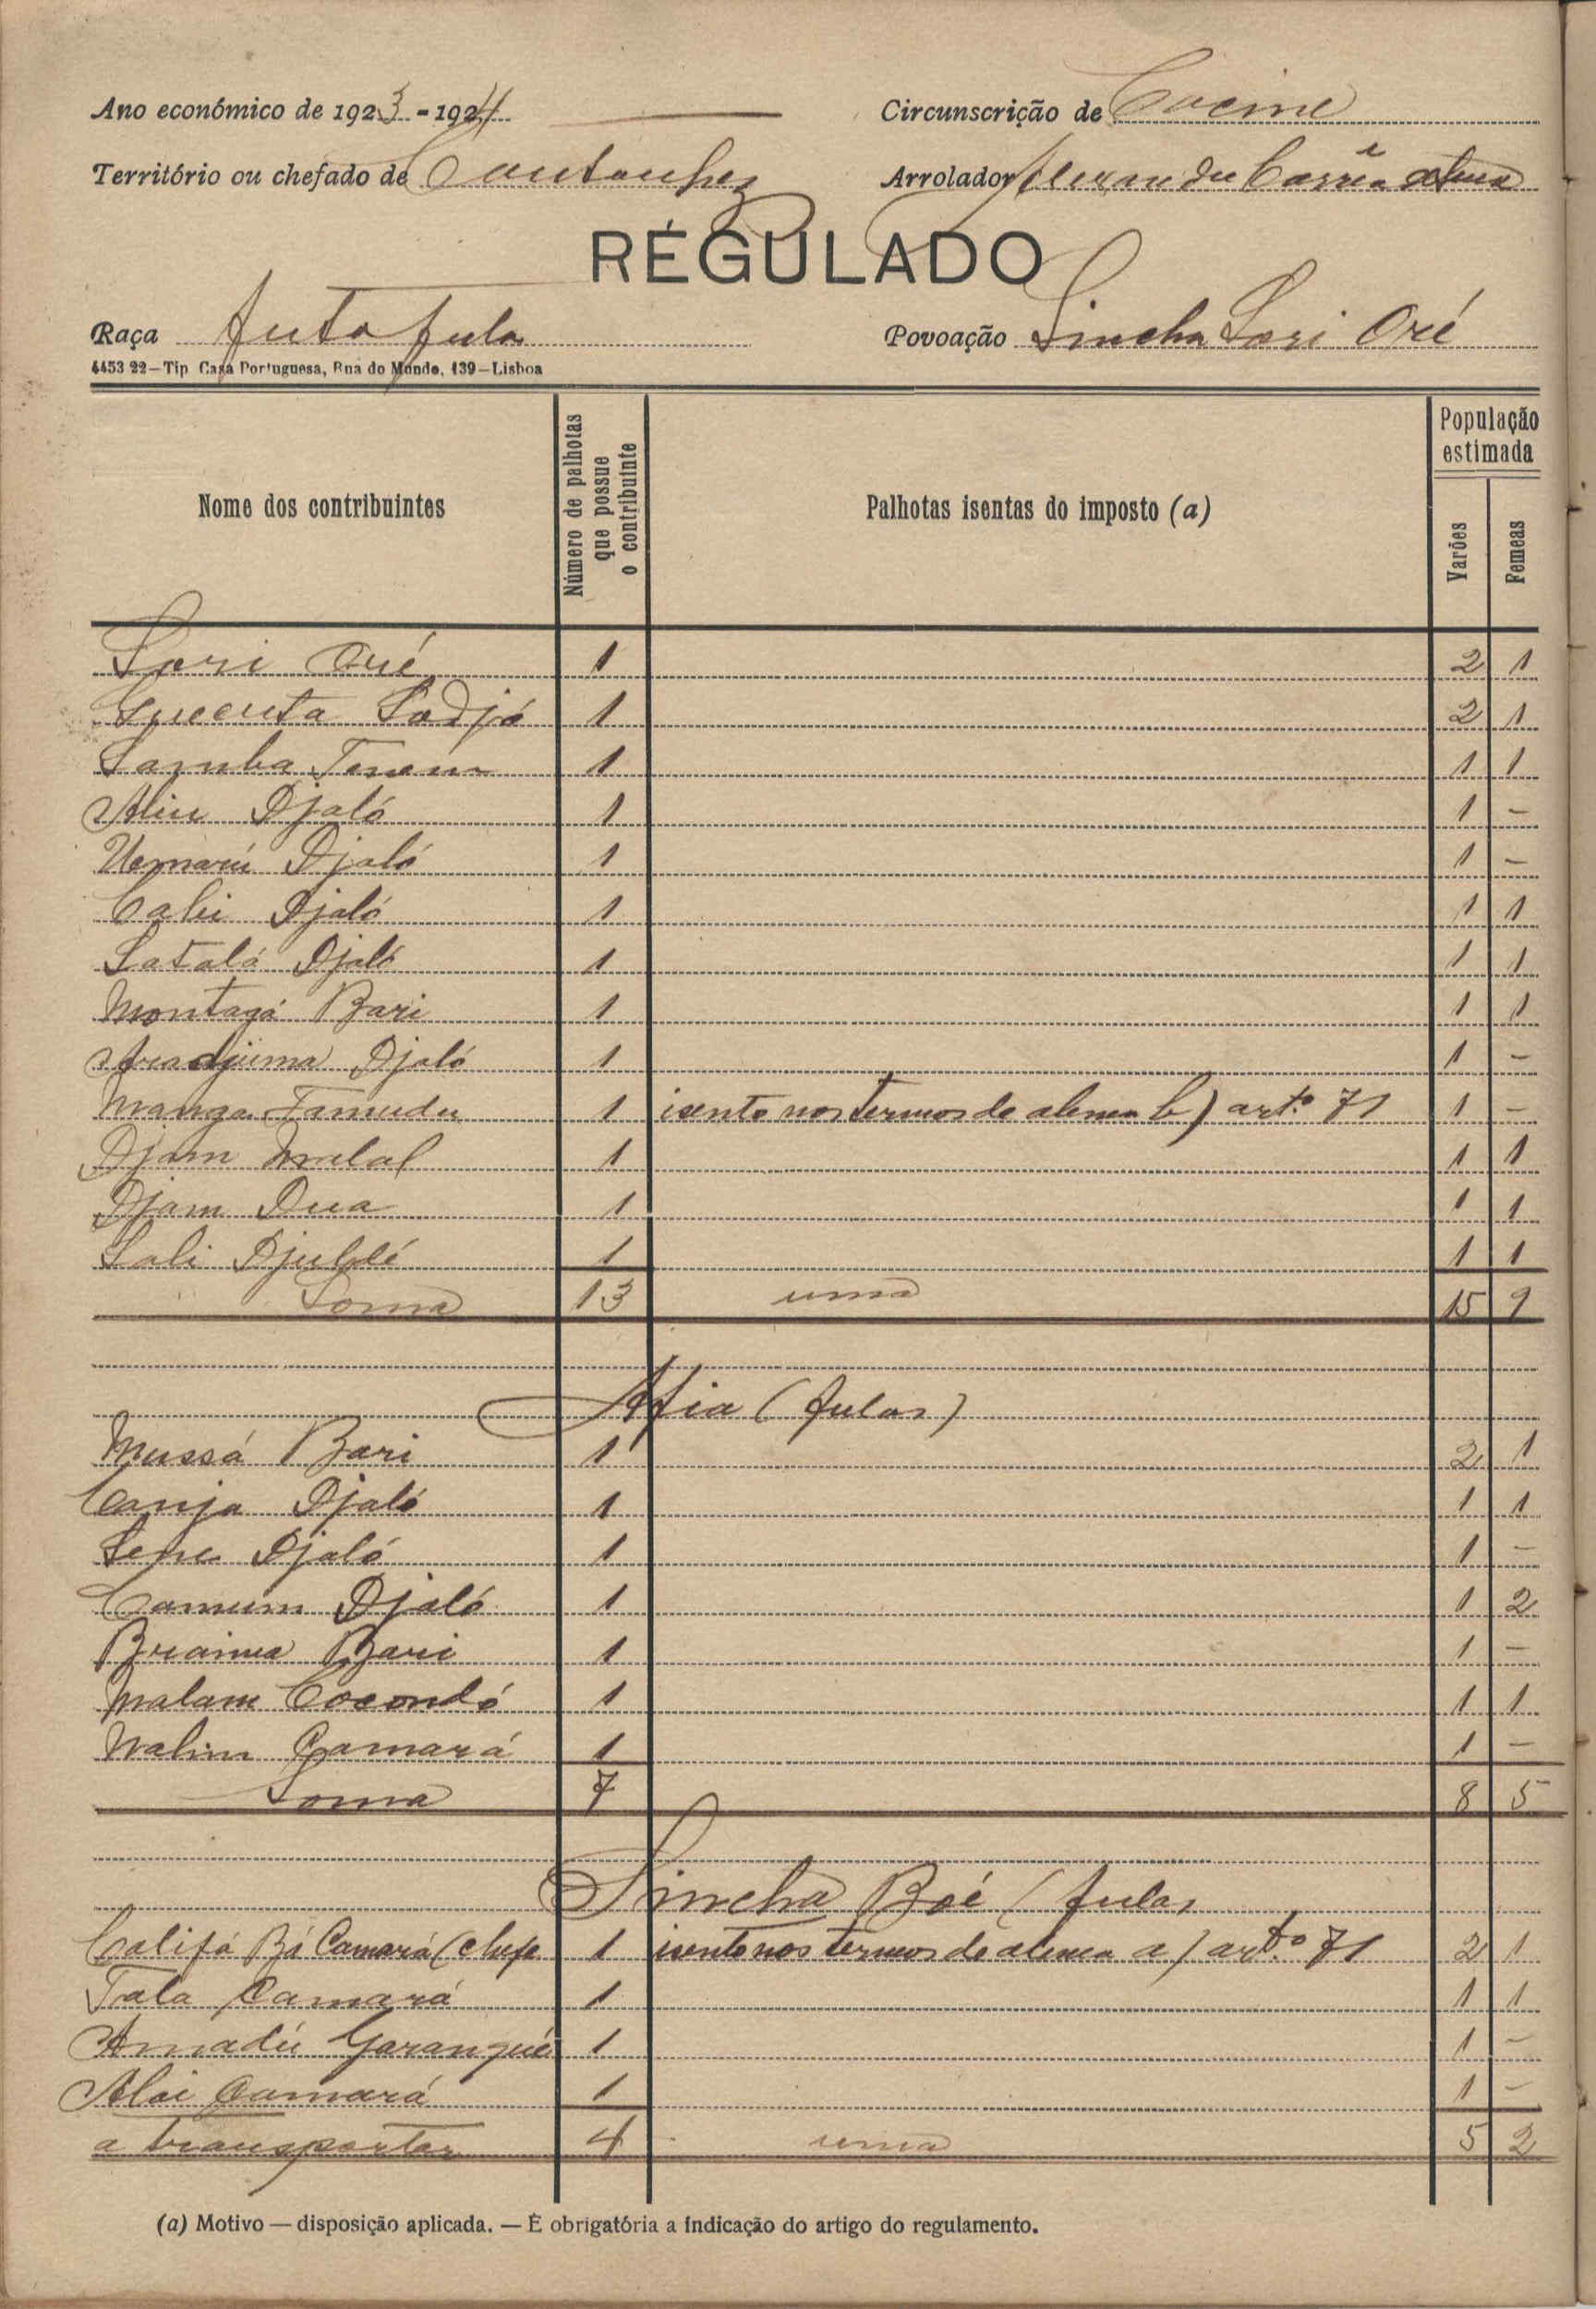 Ano económico de 1923-1924 Circunscrição de Cacine
Território ou chefado de Cantanhez Arrolador Alexandre Corrêa
RÉGULADO
Raça futa fula Povoação Sincha Sori Oré
4453 22—Tip Casa Portuguesa, Rua do Mundo, 139—Lisboa
Nome dos contribuintes Número de palhotas que possue o contribuinte Palhotas isentas do imposto (a) População estimada
Varões Femeas
Sori Oré 1 2 1
Sadjó 1 2 1
Samba 1 1 1
Aliu Djaló 1 1 -
Djaló 1 1 -
Djaló 1 1 1
Satalá Djaló 1 1 1
Montagá Bari 1 1 1
Djaló 1 1 -
Manga Tamudu 1 isento nos termos de alinea b) art.º 71 1 -
Djam Malal 1 1 1
Djam Dua 1 1 1
Sali Djuldé 1 1 1
Soma 13 uma 15 9
Afia (fulas)
Mussá Bari 1 2 1
Canja Djaló 1 1 1
Sene Djaló 1 1 -
Camum Djaló 1 1 2
Braima Bari 1 1 -
Malam Cocondó 1 1 1
Malim Camará 1 1 -
Soma 7 8 5
Sincha Boé (fulas
Califá Bá Camará (chefe 1 isento nos termos de alinea a) art.º 71 2 1
Tala Camará 1 1 1
Amadú Garangué 1 1 -
Alai Camará 1 1 -
a transportar 4 uma 5 2
(a) Motivo — disposição aplicada. — É obrigatória a indicação do artigo do regulamento.